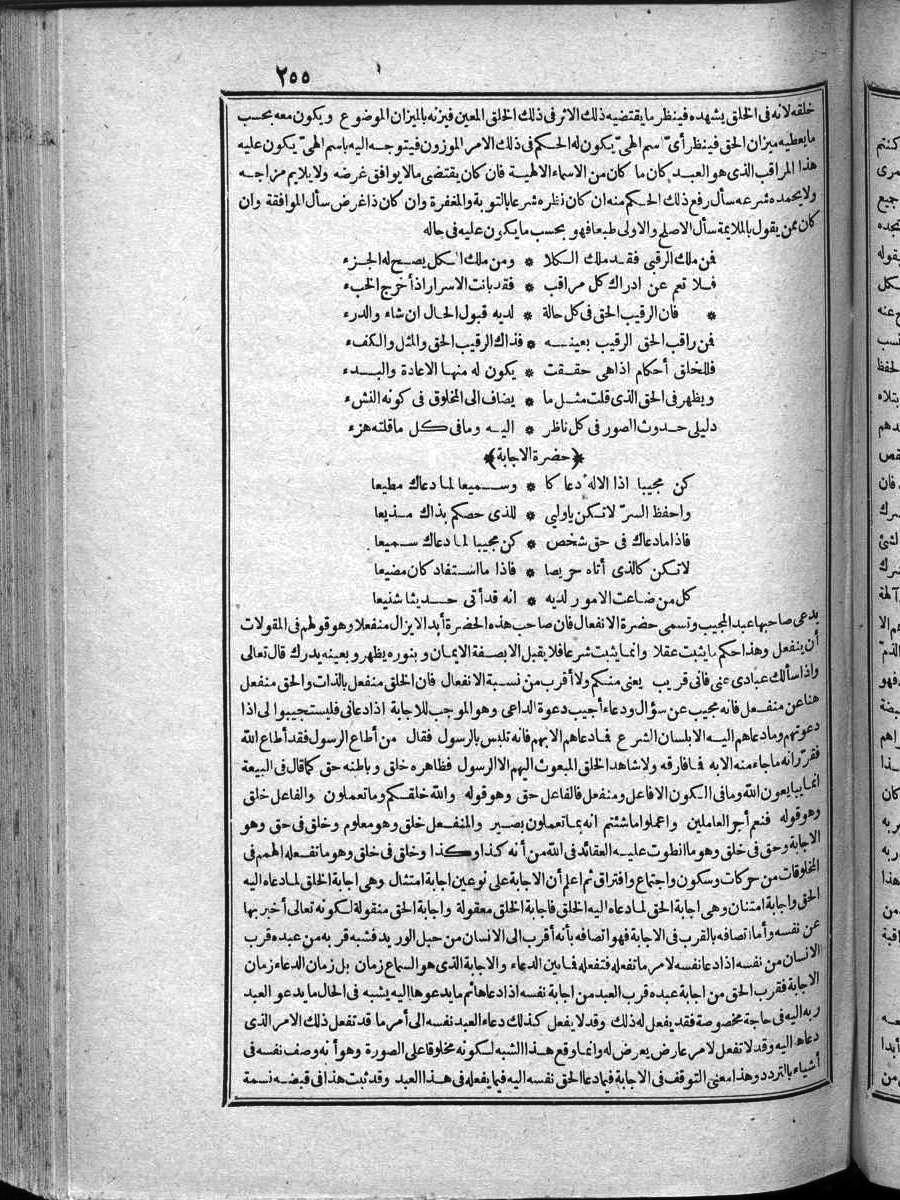 ٢٥٥
خلقه لانه فى الخلق يشهده فينظر ما يقتضيه ذلك الاثر فى ذلك الخلق المعين فيزنه بالميزان الموضوع ويكون معه بحسب
ما يعطيه ميزان الحق فينظر أى اسم الهىّ يكون له الحكم فى ذلك الامر الموزون فيتوجه اليه باسم الهىّ يكون عليه
هذا المراقب الذى هو العبد كان ما كان من الاسماء الالهية فان كان يقتضى مالا يوافق غرضه ولا يلايم مزاجه
ولا يحمده شرعه سأل رفع ذلك الحكم منه ان كان نظره شرعا بالتوبة والمغفرة وان كان ذا غرض سأل الموافقة وان
كان ممن يقول بالملايمة سأل الاصلح والاولى طبعا فهو بحسب ما يكون عليه فى حاله
فمن ملك الرقبى فقد ملك الكلا * ومن ملك الكل يصح له الجزء
فلا تعم عن ادراك كل مراقب * فقد بانت الاسرار اذ أخرج الخبء
* فان الرقيب الحق فى كل حالة * لديه قبول الحال ان شاء والدرء
فمن راقب الحق الرقيب بعينه * فذاك الرقيب الحق والمثل والكفء
فللخلق أحكام اذا هى حققت * يكون له منها الاعادة والبدء
ويظهر فى الحق الذى قلت مثل ما * يضاف الى المخلوق فى كونه النشء
دليلى حدوث الصور فى كل ناظر * اليه وما فى كل ما قلته هزء
﴿حضرة الاجابة﴾
كن مجيبا اذا الاله دعاكا * وسميعا لما دعاك مطيعا
واحفظ السرّ لا تكن ياوليى * للذى خصكم بذاك مذيعا
فاذا ما دعاك فى حق شخص * كن مجيبا لما دعاك سميعا
لا تكن كالذى أتاه حريصا * فاذا ما استفاد كان مضيعا
كل من ضاعت الامور لديه * انه قد أتى حديثا شنيعا
يدعى صاحبها عبد المجيب وتسمى حضرة الانفعال فان صاحب هذه الحضرة أبدا لا يزال منفعلا وهو قولهم فى المقولات
أن ينفعل وهذا حكم ما يثبت عقلا وانما يثبت شرعا فلا يقبل الا بصفة الايمان وبنوره يظهر وبعينه يدرك قال تعالى
واذا سألك عبادى عنى فانى قريب يعنى منكم ولا أقرب من نسبة الانفعال فان الخلق منفعل بالذات والحق منفعل
هنا عن منفعل فانه مجيب عن سؤال ودعاء أجيب دعوة الداعى وهو الموجب للاجابة اذا دعانى فليستجيبوا لى اذا
دعوتهم وما دعاهم اليه الا بلسان الشرع فما دعاهم الا بهم فانه تلبس بالرسول فقال من أطاع الرسول فقد أطاع الله
فقرّر انه ما جاء منه الا به فما فارقه ولا شاهد الخلق المبعوث اليهم الا الرسول فظاهره خلق وباطنه حق كما قال فى البيعة
انما يبايعون الله وما فى الكون الا فاعل ومنفعل فالفاعل حق وهو قوله والله خلقكم وما تعملون والفاعل خلق
وهو قوله فنعم أجر العاملين واعملوا ما شئتم انه بما تعملون بصير والمنفعل خلق وهو معلوم وخلق فى حق وهو
الاجابة وحق فى خلق وهو ما انطوت عليه العقائد فى الله من أنه كذا وكذا وخلق فى خلق وهو ما تفعله الهمم فى
المخلوقات من حركات وسكون واجتماع وافتراق ثم اعلم أن الاجابة على نوعين اجابة امتثال وهى اجابة الخلق لما دعاه اليه
الحق واجابة امتنان وهى اجابة الحق لما دعاه اليه الخلق فاجابة الخلق معقولة واجابة الحق منقولة لكونه تعالى أخبر بها
عن نفسه وأما اتصافه بالقرب فى الاجابة فهو اتصافه بأنه أقرب الى الانسان من حبل الوريد فشبه قربه من عبده قرب
الانسان من نفسه اذا دعا نفسه لامر ما تفعله فتفعله فما بين الدعاء والاجابة الذى هو السماع زمان بل زمان الدعاء زمان
الاجابة فقرب الحق من اجابة عبده قرب العبد من اجابة نفسه اذا دعاها ثم ما يدعوها اليه يشبه فى الحال ما يدعو العبد
ربه اليه فى حاجة مخصوصة فقد يفعل له ذلك وقد لا يفعل كذلك دعاء العبد نفسه الى أمر ما قد تفعل ذلك الامر الذى
دعاها اليه وقد لا تفعل لامر عارض يعرض له وانما وقع هذا الشبه لكونه مخلوقا على الصورة وهو أنه وصف نفسه فى
أشياء بالتردد وهذا معنى التوقف فى الاجابة فيما دعا الحق نفسه اليه فيما يفعله فى هذا العبد وقد ثبت هذا فى قبضه نسمة